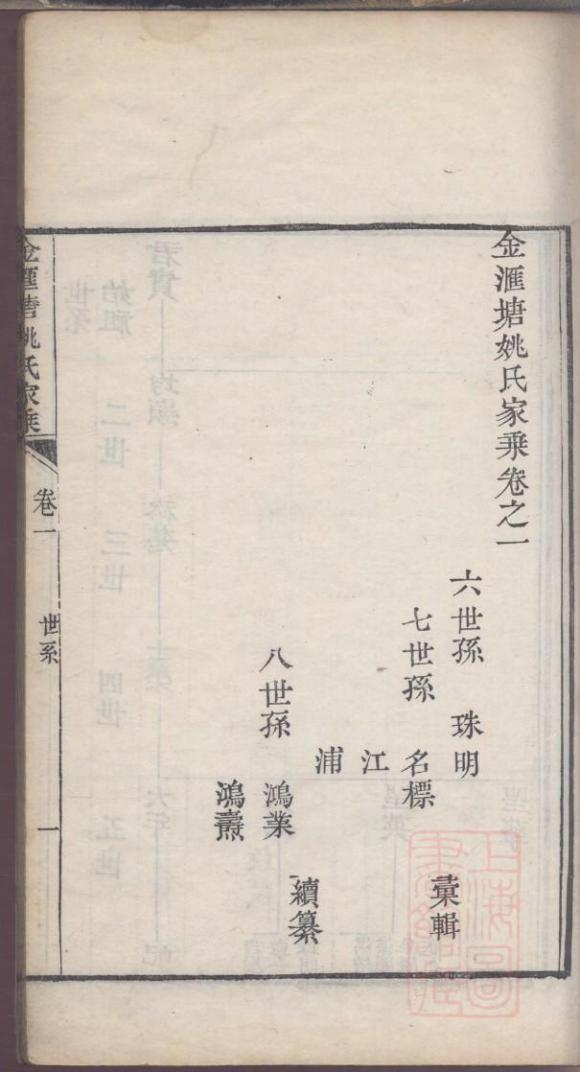 金滙塘姚氏家乘卷之一
六世孫 珠明
七世孫 名標
彙輯
江
浦
八世孫 鴻業
續纂
鴻燾
金滙塘姚氏家乘 卷一 世系 一
上海圖書館藏